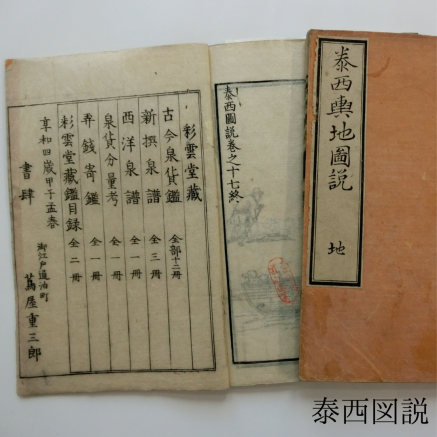 泰西輿地圖說
地
泰西圖說卷之十七終
彩雲堂藏
古今泉貨鑑 全部十二冊
新撰泉譜 全三冊
西洋泉譜 全一冊
泉貨分量考 全一冊
弄錢奇鑑 全一冊
彩雲堂藏鑑目録 全二冊
享和四歳甲子孟春
書肆
御江戸通油町
蔦屋重三郎
泰西図説